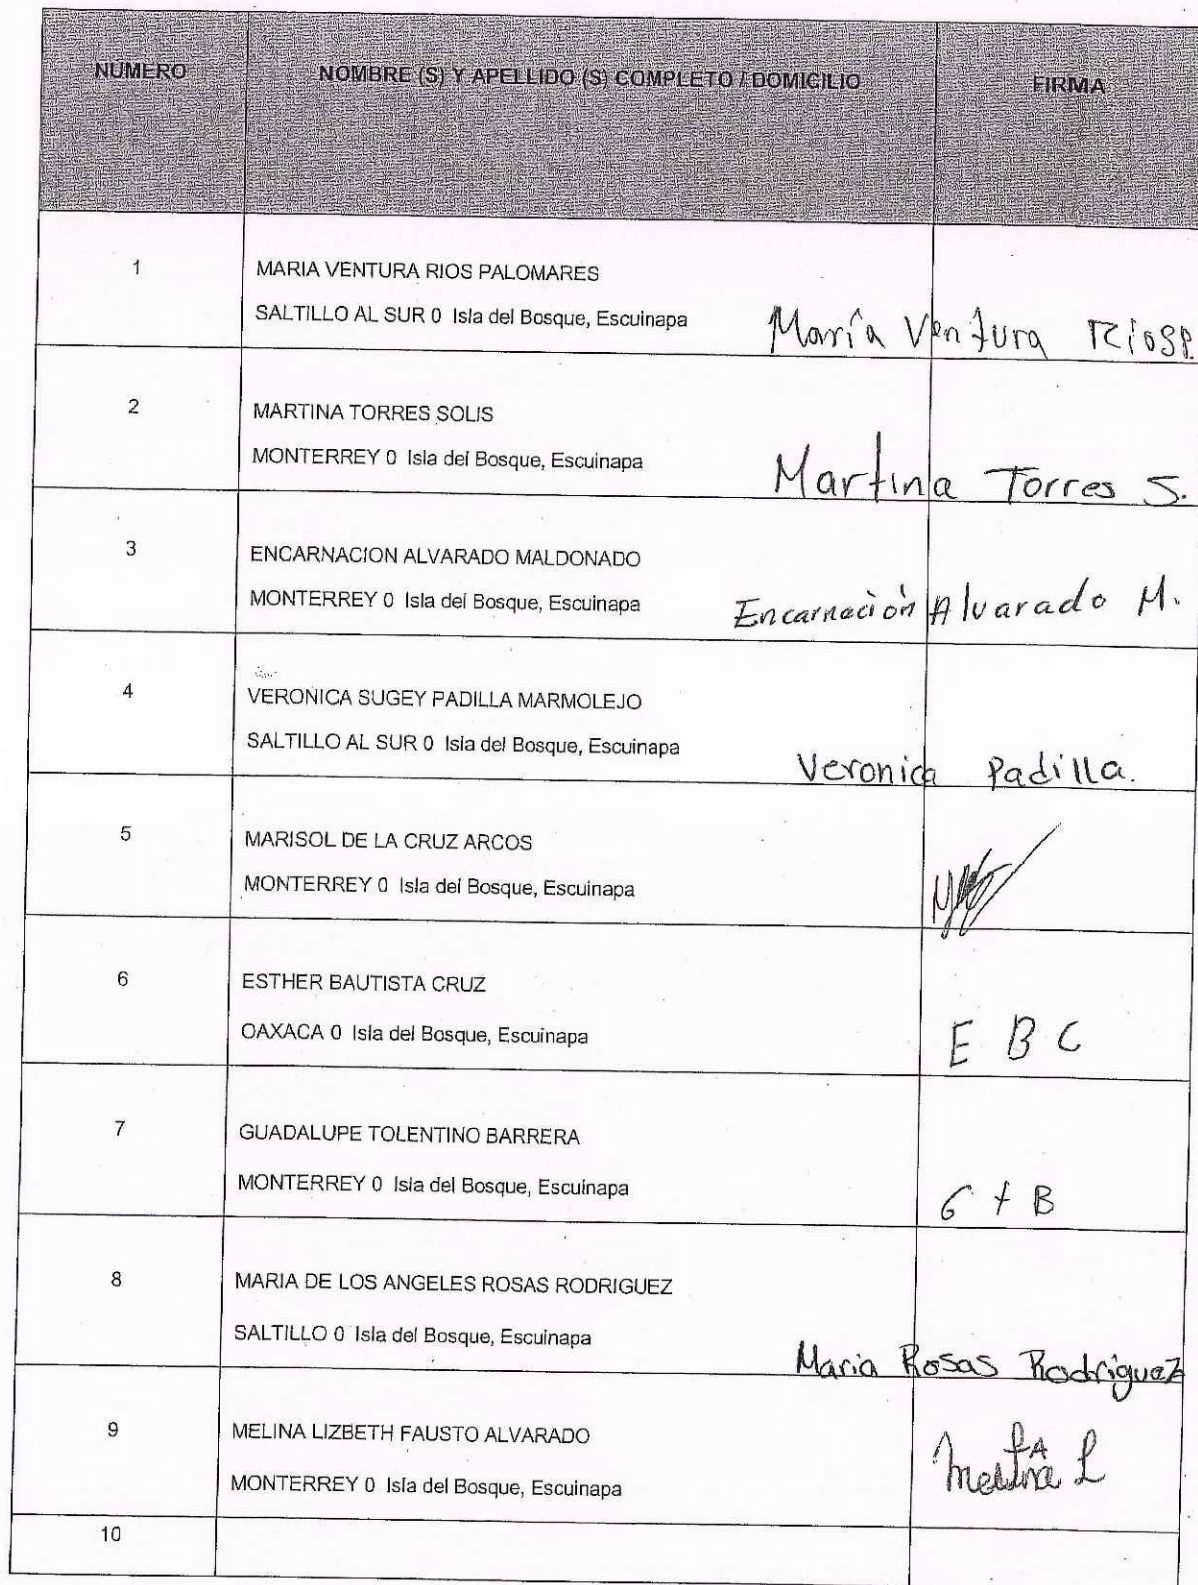 NUMERO NOMBRE (S) Y APELLIDO (S) COMPLETO / DOMICILIO FIRMA
1 MARIA VENTURA RIOS PALOMARES
SALTILLO AL SUR 0 Isla del Bosque, Escuinapa María Ventura Rios P.
2 MARTINA TORRES SOLIS
MONTERREY 0 Isla del Bosque, Escuinapa Martina Torres S.
3 ENCARNACION ALVARADO MALDONADO
MONTERREY 0 Isla del Bosque, Escuinapa Encarnación Alvarado M.
4 VERONICA SUGEY PADILLA MARMOLEJO
SALTILLO AL SUR 0 Isla del Bosque, Escuinapa Veronica Padilla.
5 MARISOL DE LA CRUZ ARCOS
MONTERREY 0 Isla del Bosque, Escuinapa
6 ESTHER BAUTISTA CRUZ
OAXACA 0 Isla del Bosque, Escuinapa E B C
7 GUADALUPE TOLENTINO BARRERA
MONTERREY 0 Isla del Bosque, Escuinapa G t B
8 MARIA DE LOS ANGELES ROSAS RODRIGUEZ
SALTILLO 0 Isla del Bosque, Escuinapa Maria Rosas Rodriguez
9 MELINA LIZBETH FAUSTO ALVARADO
MONTERREY 0 Isla del Bosque, Escuinapa
10